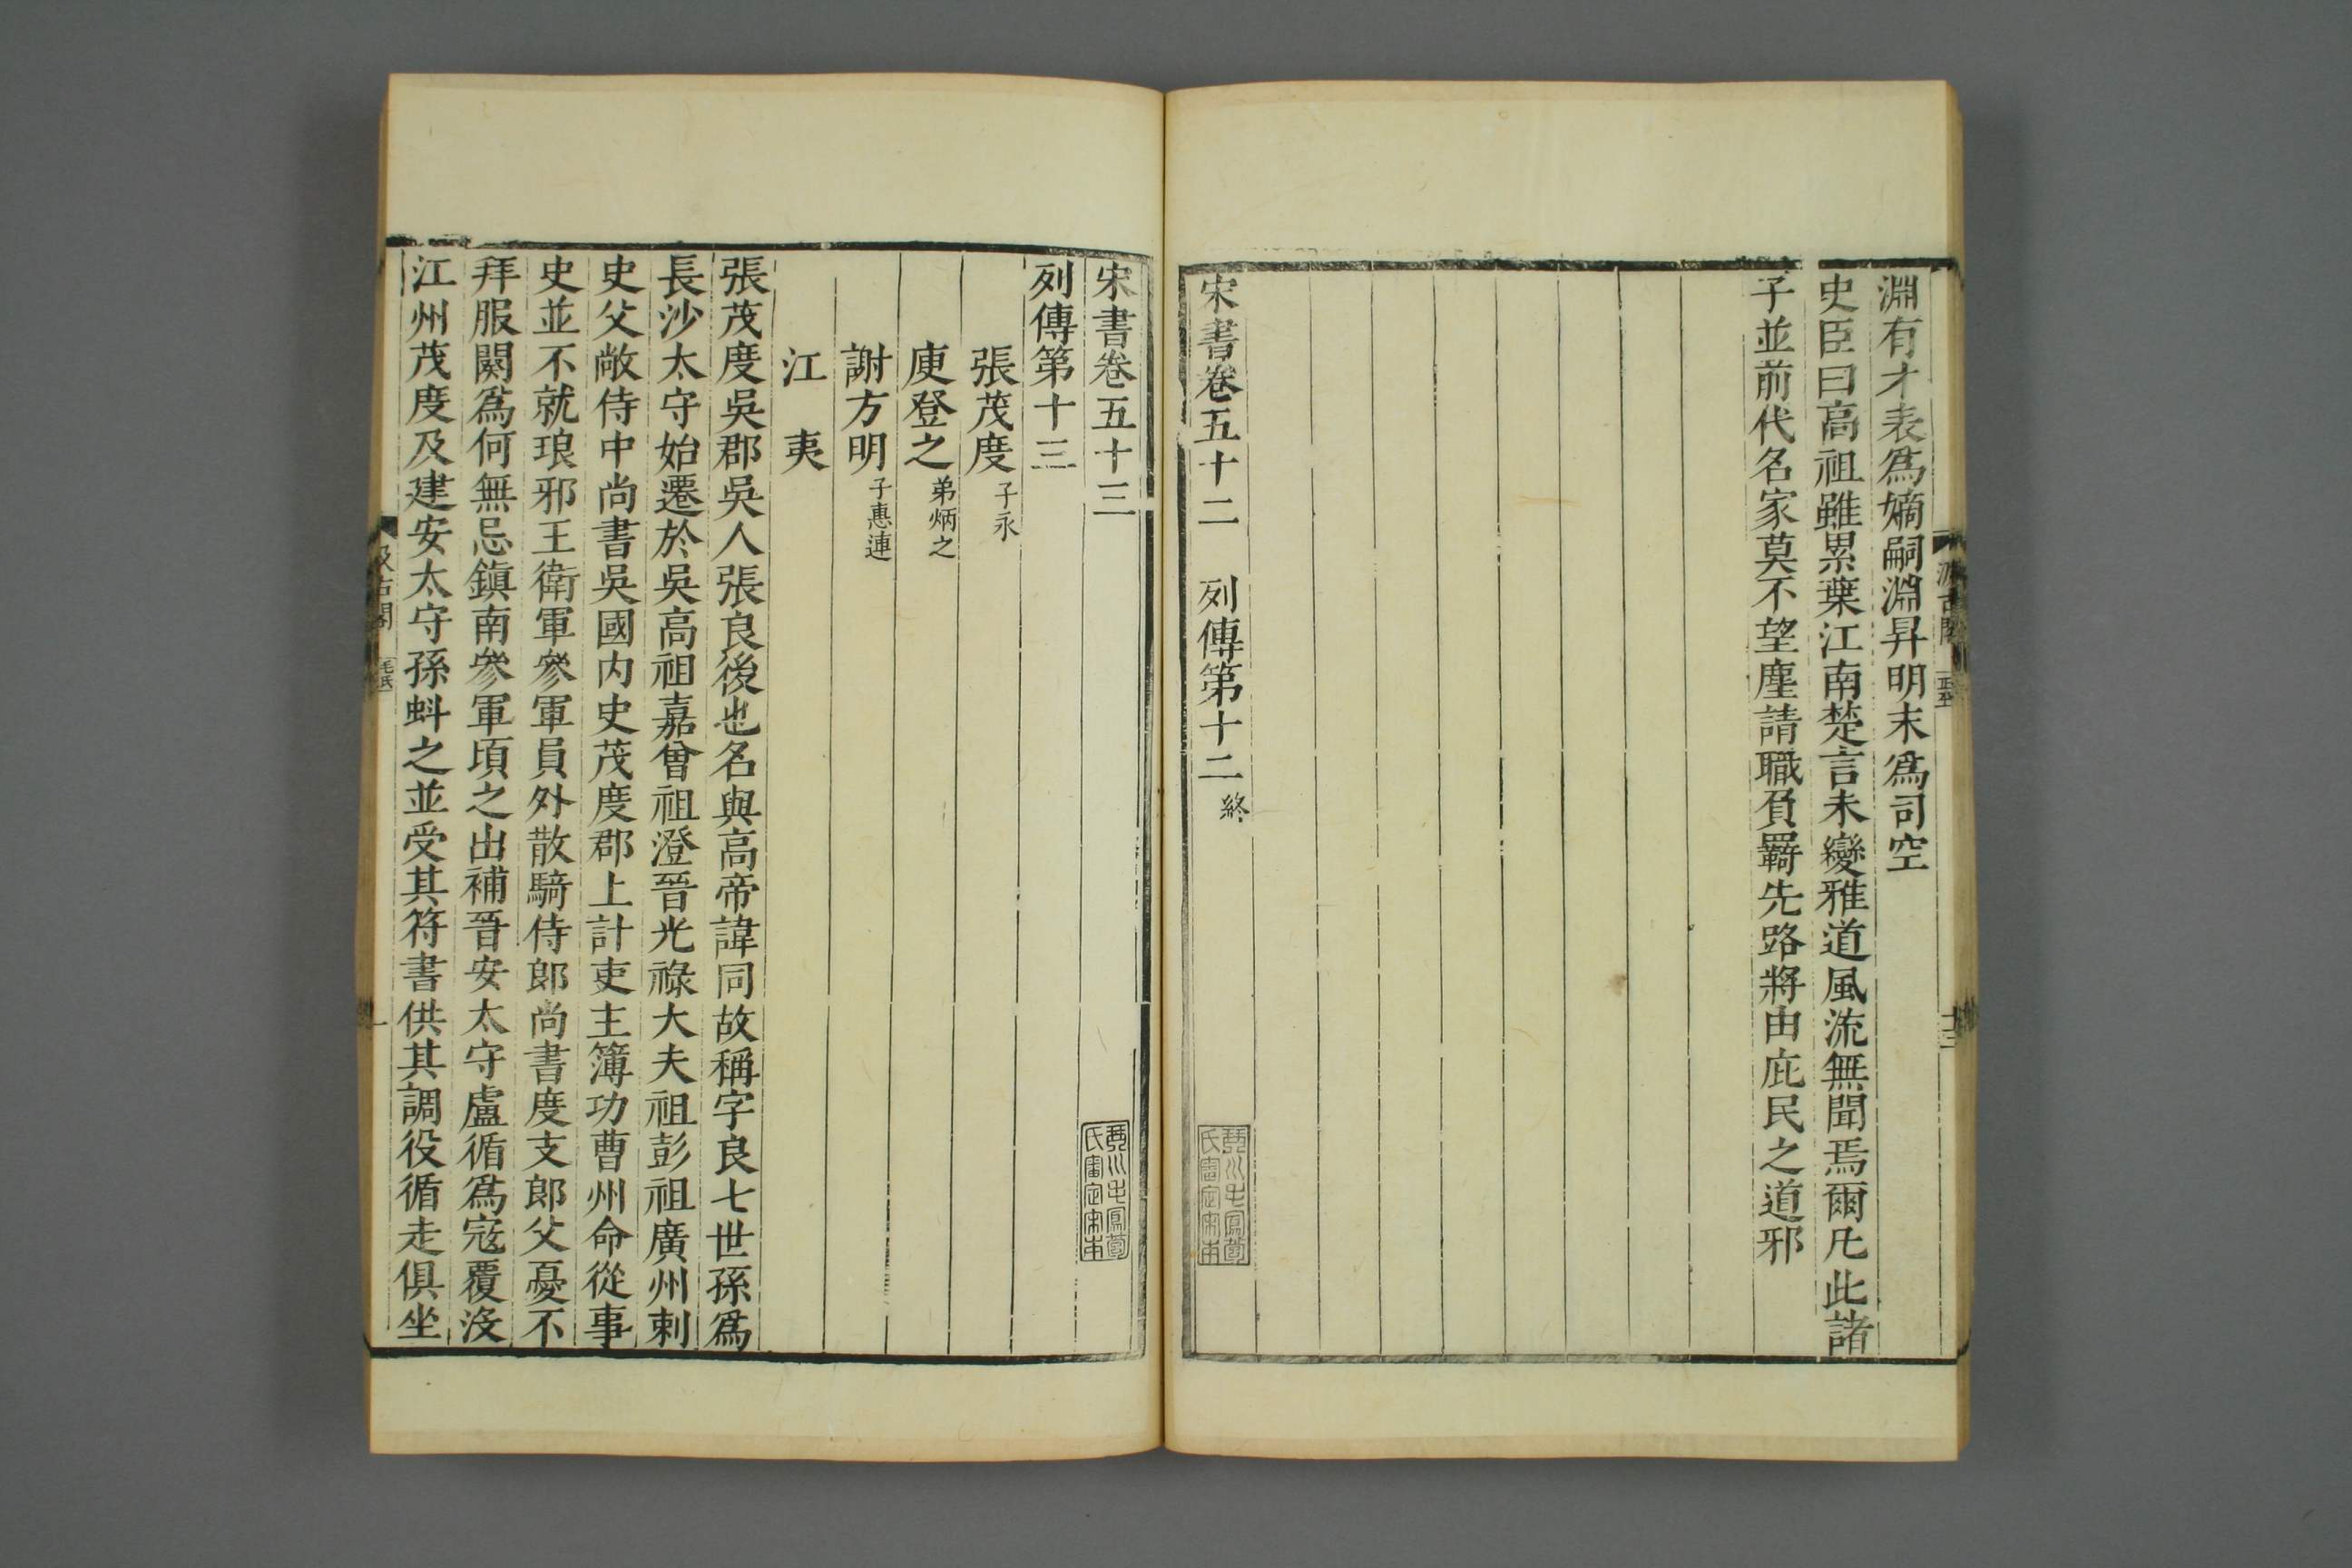 淵有才表爲嫡嗣淵昇明末爲司空
史臣曰高祖雖累葉江南楚言未變雅道風流無聞焉爾凡此諸
子並前代名家莫不望塵請職負羈先路將由庇民之道邪
宋書卷五十二 列傳第十二 終
宋書卷五十三
列傳第十三
張茂度 子永
庾登之 弟炳之
謝方明 子惠連
江 夷
張茂度吳郡吳人張良後也名與高帝諱同故稱字良七世孫爲
長沙太守始遷於吳高祖嘉曾祖澄晉光祿大夫祖彭祖廣州刺
史父敞侍中尚書吳國內史茂度郡上計吏主簿功曹州命從事
史並不就琅邪王衛軍參軍員外散騎侍郎尚書度支郎父憂不
拜服闋爲何無忌鎮南參軍頃之出補晉安太守盧循爲寇覆沒
江州茂度及建安太守孫蚪之並受其符書供其調役循走俱坐
汲古閣
毛氏
一